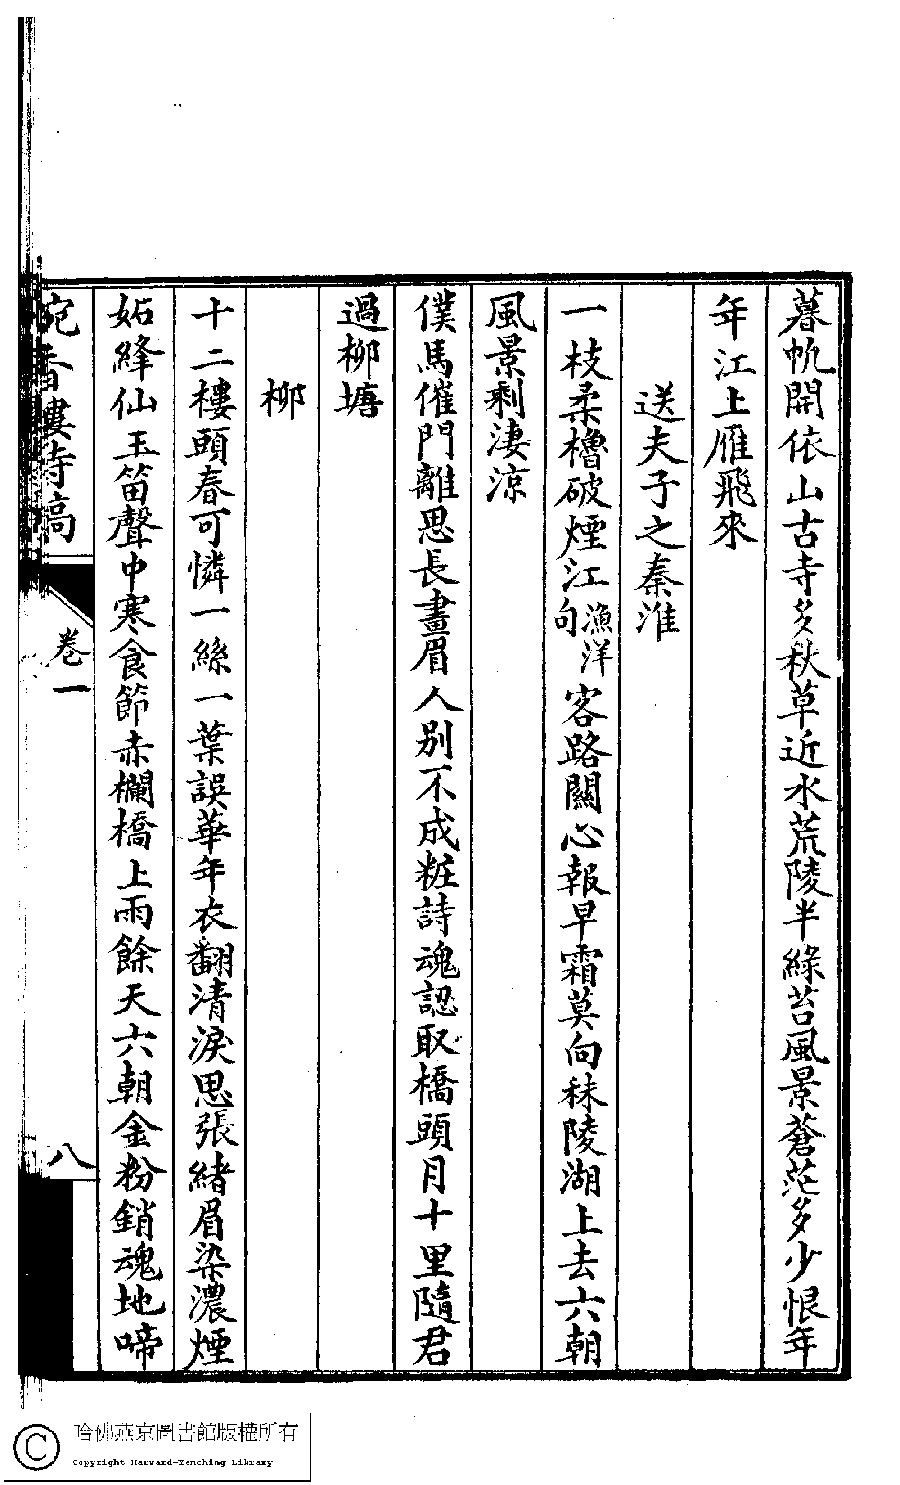 暮帆開依山古寺多秋草近水荒陵半綠苔風景蒼茫多少恨年
年江上雁飛來
送夫子之秦淮
一枝柔櫓破煙江漁洋句客路關心報早霜莫向秣陵湖上去六朝
風景剩淒涼
僕馬催門離思長畫眉人別不成粧詩魂認取橋頭月十里隨君
過柳塘
柳
十二樓頭春可憐一絲一葉誤華年衣翻清淚思張緒眉染濃煙
妬絳仙玉笛聲中寒食節赤欄橋上雨餘天六朝金粉銷魂地啼
宛香樓詩稿
卷一
八
哈佛燕京圖書館版權所有
Copyright Harvard-Yenching Library